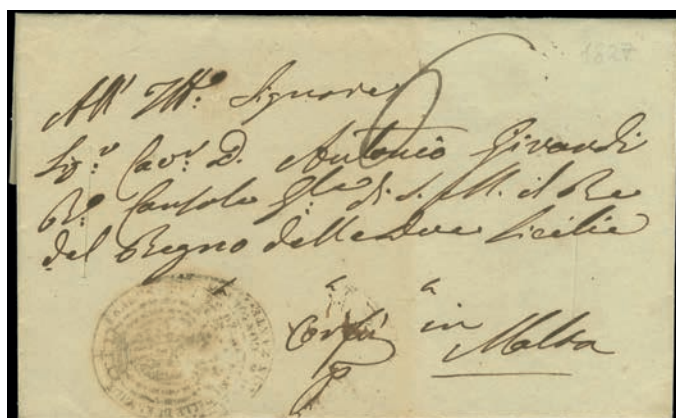 1827
All' Ill.º Signore
Sig.r Cav.r D. Antonio Girardi
R.º Console G.le di S. M. il Re
del Regno delle Due Sicilie
Corfù in Malta